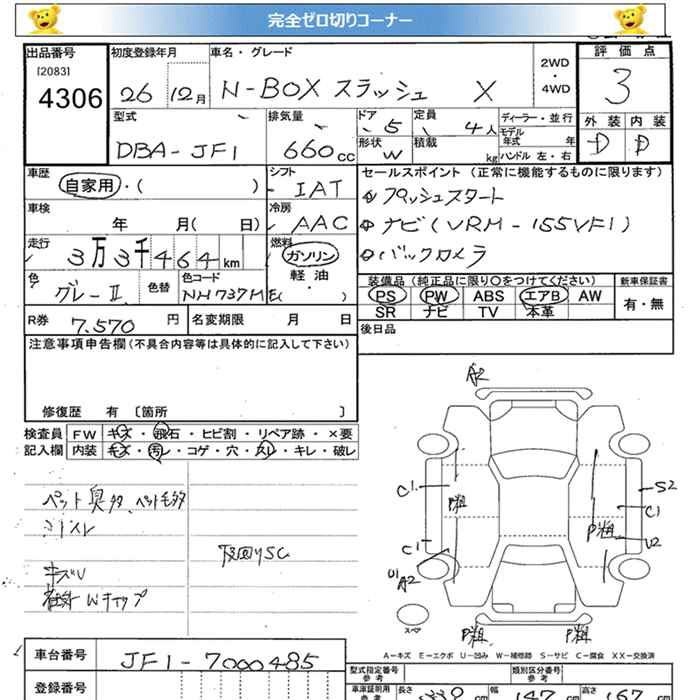 完全ゼロ切りコーナー
出品番号 初度登録年月 車名・グレード 評価点
[2083]
4306 26 12月 N-BOX スラッシュ X 2WD・4WD 3
型式 排気量 ドア 定員 ディーラー・並行 外装 内装
DBA-JF1 660cc 5 4人 モデル年式 年 D D
形状 W 積載 kg ハンドル 左・右
車歴 シフト セールスポイント(正常に機能するものに限ります)
自家用・( ) IAT プッシュスタート
車検 冷房 ナビ(VRM-155VFI)
年 月( 日) AAC バックカメラ
走行 燃料
3万3千464km ガソリン
軽油
色 色替 色コード 装備品(純正品に限り○をつけてください) 新車保証書
グレーII NH737M E( ・ ) PS PW ABS エアB AW 有・無
SR ナビ TV 本革
R券 7.570円 名変期限 月 日 後日品
注意事項申告欄(不具合内容等は具体的に記入して下さい)
修復歴 有 〔箇所 〕
検査員 FW キズ・飛石・ヒビ割・リペア跡・×要
記入欄 内装 キズ・汚レ・コゲ・穴・スレ・キレ・破レ
ペット臭タ、ペット毛タ
シートスレ
キズU
下回りSC
Wキャップ
A2
C1 P粗 S2
C1
P粗
C1 U2
U1 A2
スペア
P粗 P粗
A-キズ E-エクボ U-凹み W-補修跡 S-サビ C-腐食 XX-交換済
車台番号 JF1-7000485
型式指定番号 類別区分番号
登録番号 車庫証明用 参考 長さ cm 幅 147 cm 高さ 167